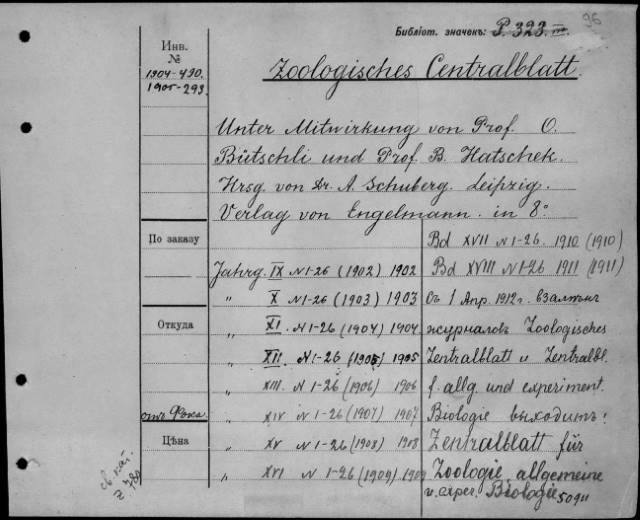 96
Библіот. значекъ: P. 323. III.
Инв. №
1904-490.
1905-293.
Zoologisches Centralblatt.
Unter Mitwirkung von Prof. O.
Bütschli und Prof. B. Hatschek.
Hrsg. von Dr. A. Schuberg. Leipzig.
Verlag von Engelmann. in 8°
По заказу
Bd XVII N 1-26. 1910 (1910)
Jahrg. IX N 1-26 (1902) 1902
Bd XVIII N 1-26 1911 (1911)
" X N 1-26 (1903) 1903
Съ 1 Апр. 1912 г. взамѣнъ
Откуда
" XI. N 1-26 (1904) 1904
журналовъ Zoologisches
" XII N 1-26 (1905) 1905
Zentralblatt и Zentralbl.
" XIII. N 1-26 (1906) 1906
f. allg. und experiment.
отъ Фока.
" XIV N 1-26 (1907) 1907
Biologie выходитъ:
Цѣна
" XV N 1-26 (1908) 1908
Zentralblatt für
" XVI N 1-26 (1909) 1909
Zoologie, allgemeine
u. exper. Biologie 5094